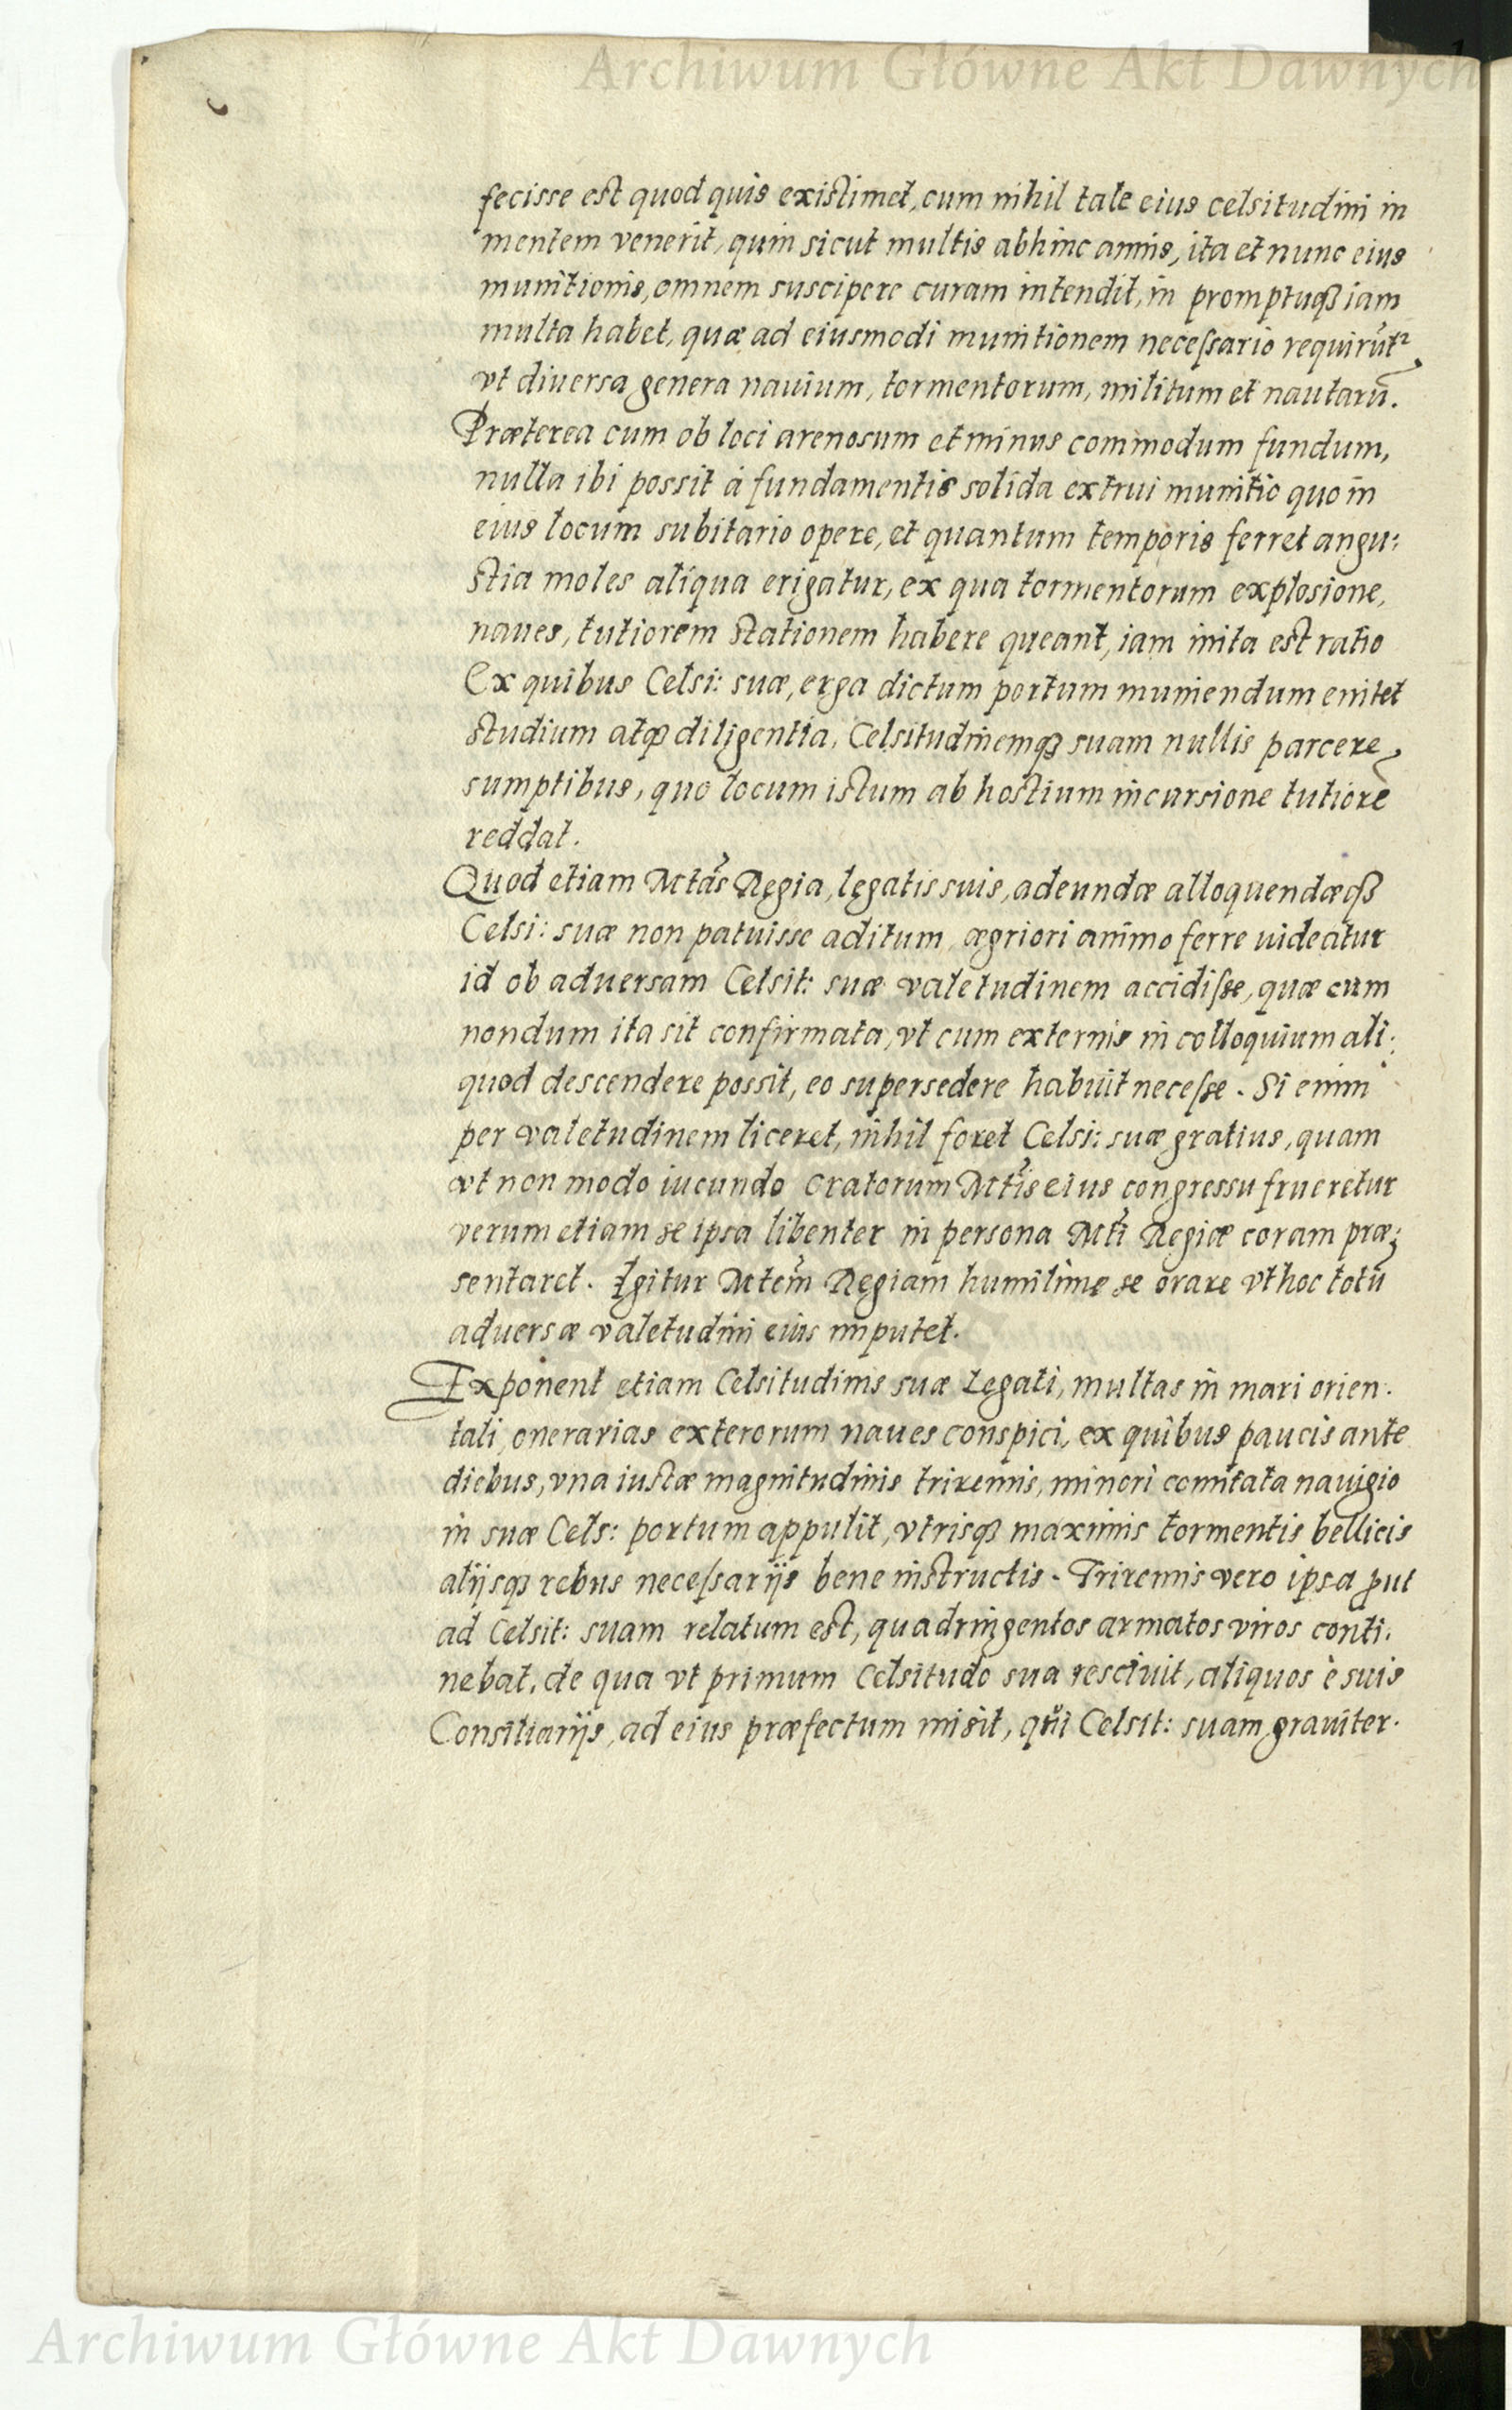 Archiwum Główne Akt Dawnych
fecisse est quod quis existimet, cum nihil tale eius celsitudini in
mentem venerit, quin sicut multis abhinc annis, ita et nunc eius
munitionis, omnem suscipere curam intendit, in promptuqꝫ iam
multa habet, quæ ad eiusmodi munitionem necessario requirūtꝛ
vt diuersa genera nauium, tormentorum, militum et nautarū.
Præterea cum ob loci arenosum et minus commodum fundum,
nulla ibi possit à fundamentis solida extrui munitio quo in
eius locum subitario opere, et quantum temporis ferret angu:
stia moles aliqua erigatur, ex qua tormentorum explosione,
naues, tutiorem stationem habere queant, iam inita est ratio
Ex quibus Celsi: suæ, erga dictum portum muniendum enitet
studium atqꝫ diligentia, Celsitudinemqꝫ suam nullis parcere
sumptibus, quo locum istum ab hostium incursione tutiorē
reddat.
Quod etiam Mtas Regia, legatis suis, adeundæ alloquendæqꝫ
Celsi: suæ non patuisse aditum, ægriori animo ferre uideatur
id ob aduersam Celsit: suæ valetudinem accidisse, quæ cum
nondum ita sit confirmata, vt cum externis in colloquium ali:
quod descendere possit, eo supersedere habuit necesse. Si enim
per valetudinem liceret, nihil foret Celsi: suæ gratius, quam
vt non modo iucundo Oratorum Mtis eius congressu frueretur
verum etiam se ipsa libenter in persona Mti Regiæ coram præ:
sentaret. Igitur Mtem Regiam humilime se orare vt hoc totū
aduersæ valetudini eius imputet.
Exponent etiam Celsitudinis suæ Legati, multas in mari orien:
tali, onerarias exterorum naues conspici, ex quibus paucis ante
diebus, vna iustæ magnitudinis triremis, minori comitata nauigio
in suæ Cels: portum appulit, vtrisqꝫ maximis tormentis bellicis
alijsqꝫ rebus necessarijs bene instructis. Triremis vero ipsa ꝓut
ad Celsit: suam relatum est, quadringentos armatos viros conti:
nebat, de qua vt primum Celsitudo sua resciuit, aliquos è suis
Consiliarijs, ad eius præfectum misit, qui Celsit: suam grauiter.
Archiwum Główne Akt Dawnych